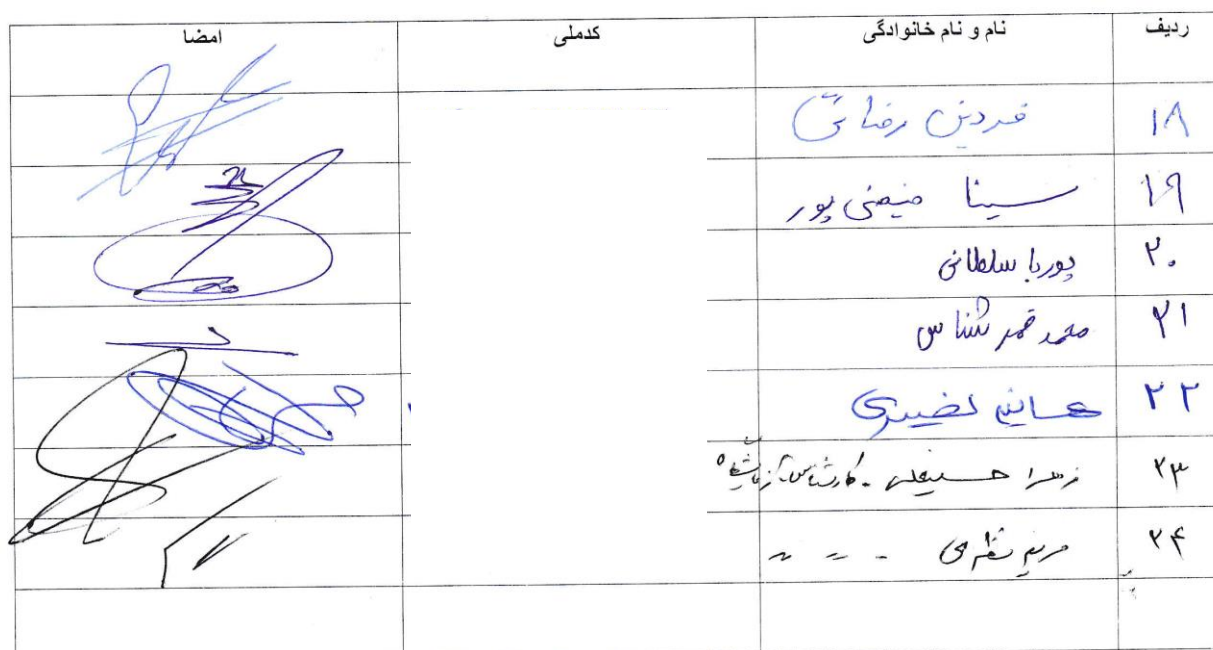 ردیف نام و نام خانوادگی کدملی امضا
۱۸ فردین رضائی
۱۹ سینا فیضی پور
۲۰ پوریا سلطانی
۲۱ محمد قمر شناس
۲۲ نصیری
۲۳ زهرا - کارشناس آزمایشگاه
۲۴ مریم " " "